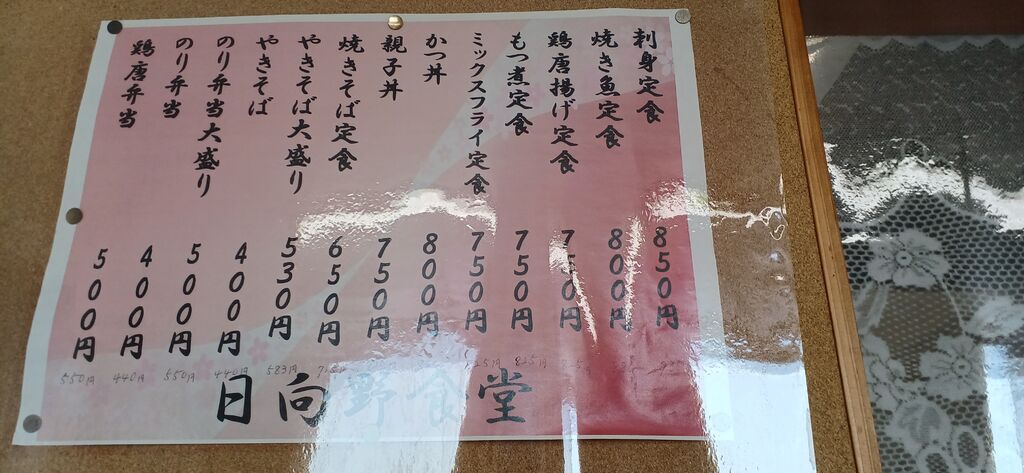 刺身定食 850円
焼き魚定食 800円
鶏唐揚げ定食 750円
もつ煮定食 750円 825円
ミックスフライ定食 750円
かつ丼 800円
親子丼 750円
焼きそば定食 650円
やきそば大盛り 530円 583円
やきそば 400円 440円
のり弁当大盛り 500円 550円
のり弁当 400円 440円
鶏唐弁当 500円 550円
日向野食堂